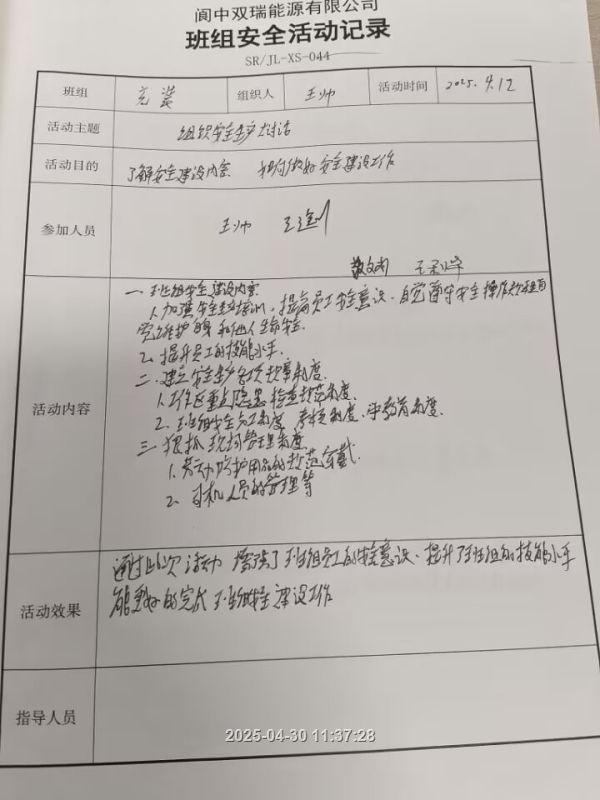 阆中双瑞能源有限公司
班组安全活动记录
SR/JL-XS-044
班组 充装 组织人 王帅 活动时间 2025.4.12
活动主题 组织安全生产大讨论
活动目的 了解安全建设内容 如何做好安全建设工作
参加人员 王帅
活动内容
一.班组安全建设内容
1.加强安全培训,提高员工安全意识,自觉遵守安全操作规程自
觉维护自身和他人生命安全.
2.提升员工的技能水平.
二.建立安全生产各项规章制度.
1.工作区重点隐患检查规范制度.
2.班组安全员工制度,考核制度,教育制度.
三.狠抓现场管理制度
1.劳动防护用品的规范穿戴.
2.司机人员的管理等
活动效果 通过此次活动 增强了班组员工的安全意识、提升了班组的技能水平
能更好的完成班组安全建设工作
指导人员
2025-04-30 11:37:28